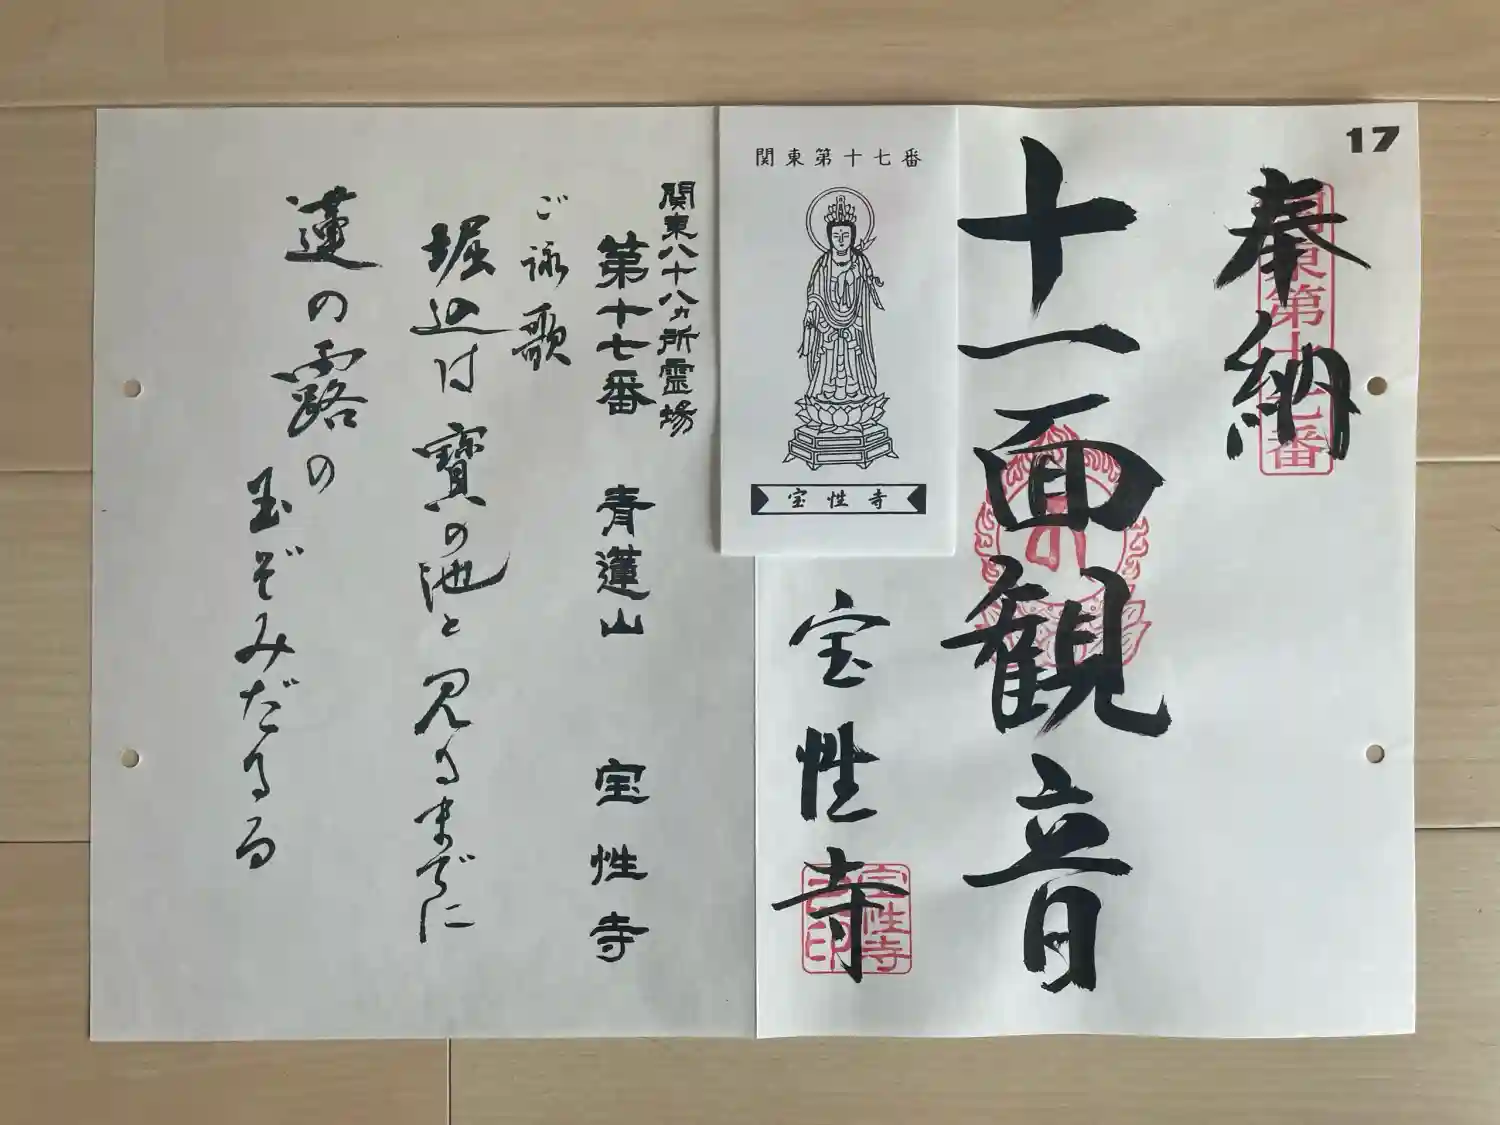 17
奉納
関東第十七番
十一面観音
宝性寺
宝性寺
法印
関東第十七番
宝性寺
関東八十八ヵ所霊場
第十七番 青蓮山 宝性寺
ご詠歌
堀込は寶の池と見るまでに
蓮の露の
玉ぞみだるる